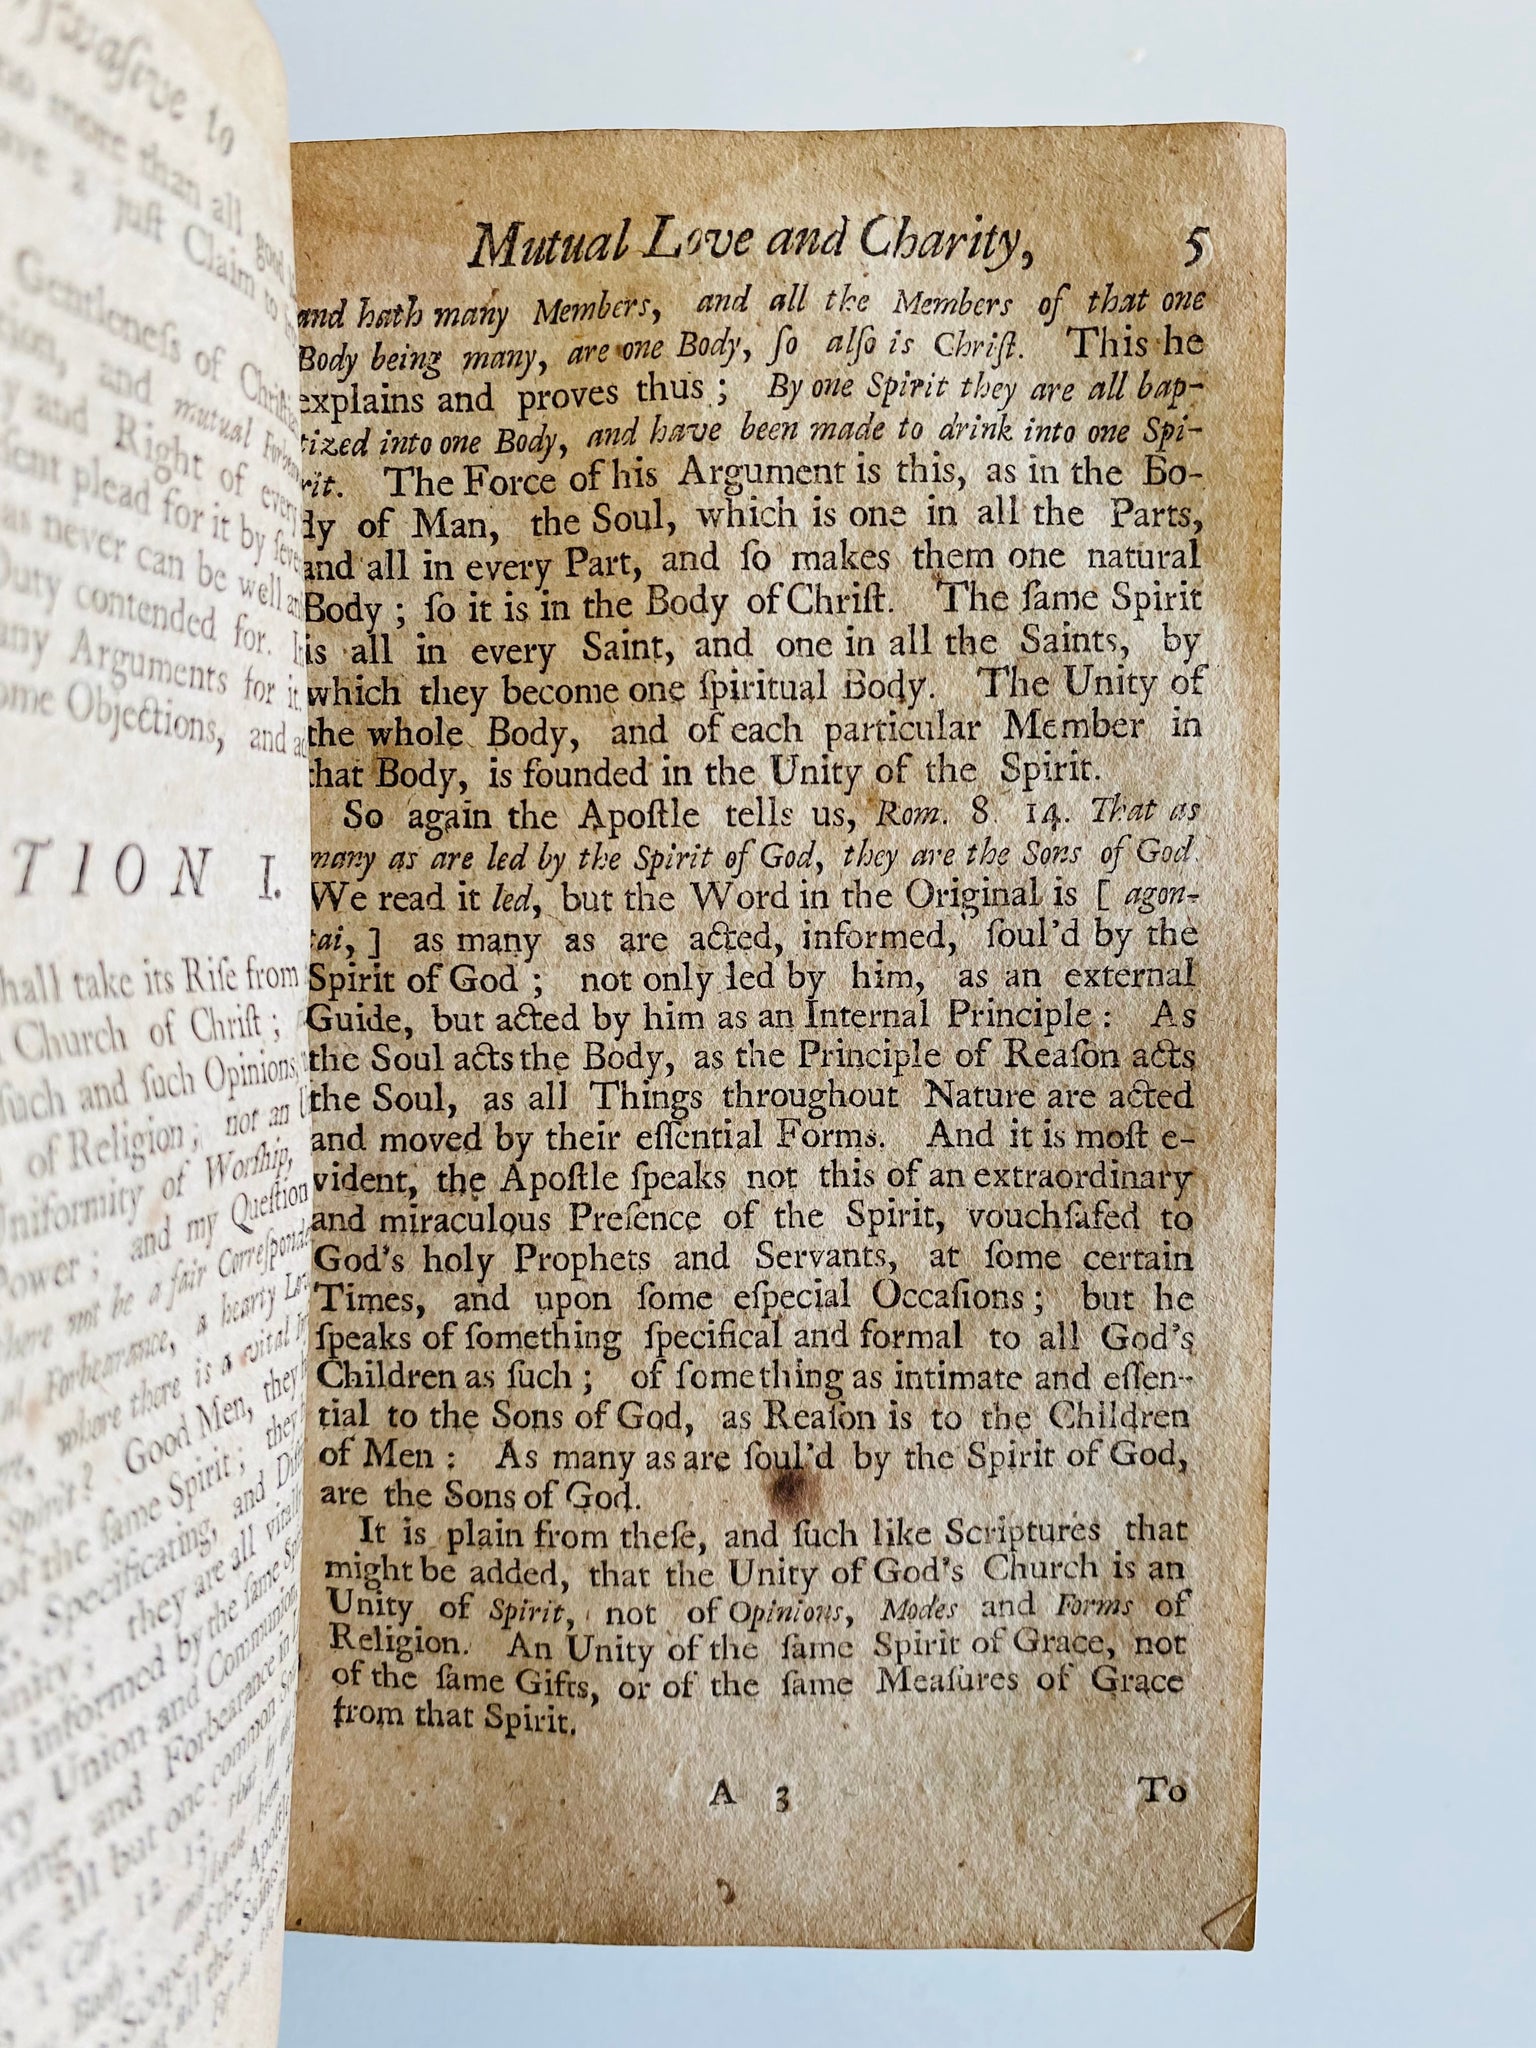 ſwaſive to
no more than all good
ave a juſt Claim to
Gentleneſs of Chriſtian
and mutual Forbear
y and Right of every
plead for it by ſeve
as never can be well
Duty contended for.
any Arguments for it
ome Objections, and
TION I.
hall take its Riſe from
Church of Chriſt;
ſuch and ſuch Opinions,
of Religion; not an
Uniformity of Worſhip,
Power; and my Queſtion
there not be a fair Correſponde
Forbearance, a hearty
where there is a vital
Spirit? Good Men, they
of the ſame Spirit; they
Specificating, and
they are all vitally
informed by the ſame
Union and Communion
and Forbearance in
all but one common
1 Cor. 12. 13. that by
Mutual Love and Charity, 5
and hath many Members, and all the Members of that one
Body being many, are one Body, ſo alſo is Chriſt. This he
explains and proves thus; By one Spirit they are all bap-
tized into one Body, and have been made to drink into one Spi-
rit. The Force of his Argument is this, as in the Bo-
dy of Man, the Soul, which is one in all the Parts,
and all in every Part, and ſo makes them one natural
Body; ſo it is in the Body of Chriſt. The ſame Spirit
is all in every Saint, and one in all the Saints, by
which they become one ſpiritual Body. The Unity of
the whole Body, and of each particular Member in
that Body, is founded in the Unity of the Spirit.
So again the Apoſtle tells us, Rom. 8. 14. That as
many as are led by the Spirit of God, they are the Sons of God.
We read it led, but the Word in the Original is [ agon-
tai, ] as many as are acted, informed, ſoul'd by the
Spirit of God; not only led by him, as an external
Guide, but acted by him as an Internal Principle: As
the Soul acts the Body, as the Principle of Reaſon acts
the Soul, as all Things throughout Nature are acted
and moved by their eſſential Forms. And it is moſt e-
vident, the Apoſtle ſpeaks not this of an extraordinary
and miraculous Preſence of the Spirit, vouchſafed to
God's holy Prophets and Servants, at ſome certain
Times, and upon ſome eſpecial Occaſions; but he
ſpeaks of ſomething ſpecifical and formal to all God's
Children as ſuch; of ſomething as intimate and eſſen-
tial to the Sons of God, as Reaſon is to the Children
of Men: As many as are ſoul'd by the Spirit of God,
are the Sons of God.
It is plain from theſe, and ſuch like Scriptures that
might be added, that the Unity of God's Church is an
Unity of Spirit, not of Opinions, Modes and Forms of
Religion. An Unity of the ſame Spirit of Grace, not
of the ſame Gifts, or of the ſame Meaſures of Grace
from that Spirit.
A 3 To